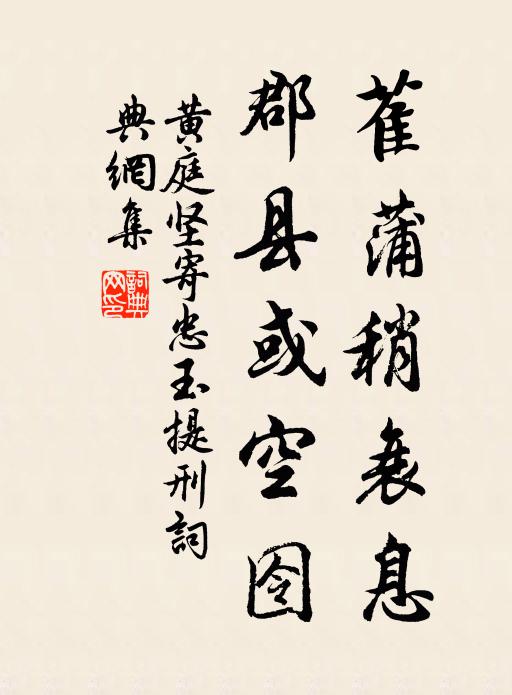 萑蒲稍衰息
郡县或空囹
黄庭坚寄忠玉提刑詞
典網集
詞典網印